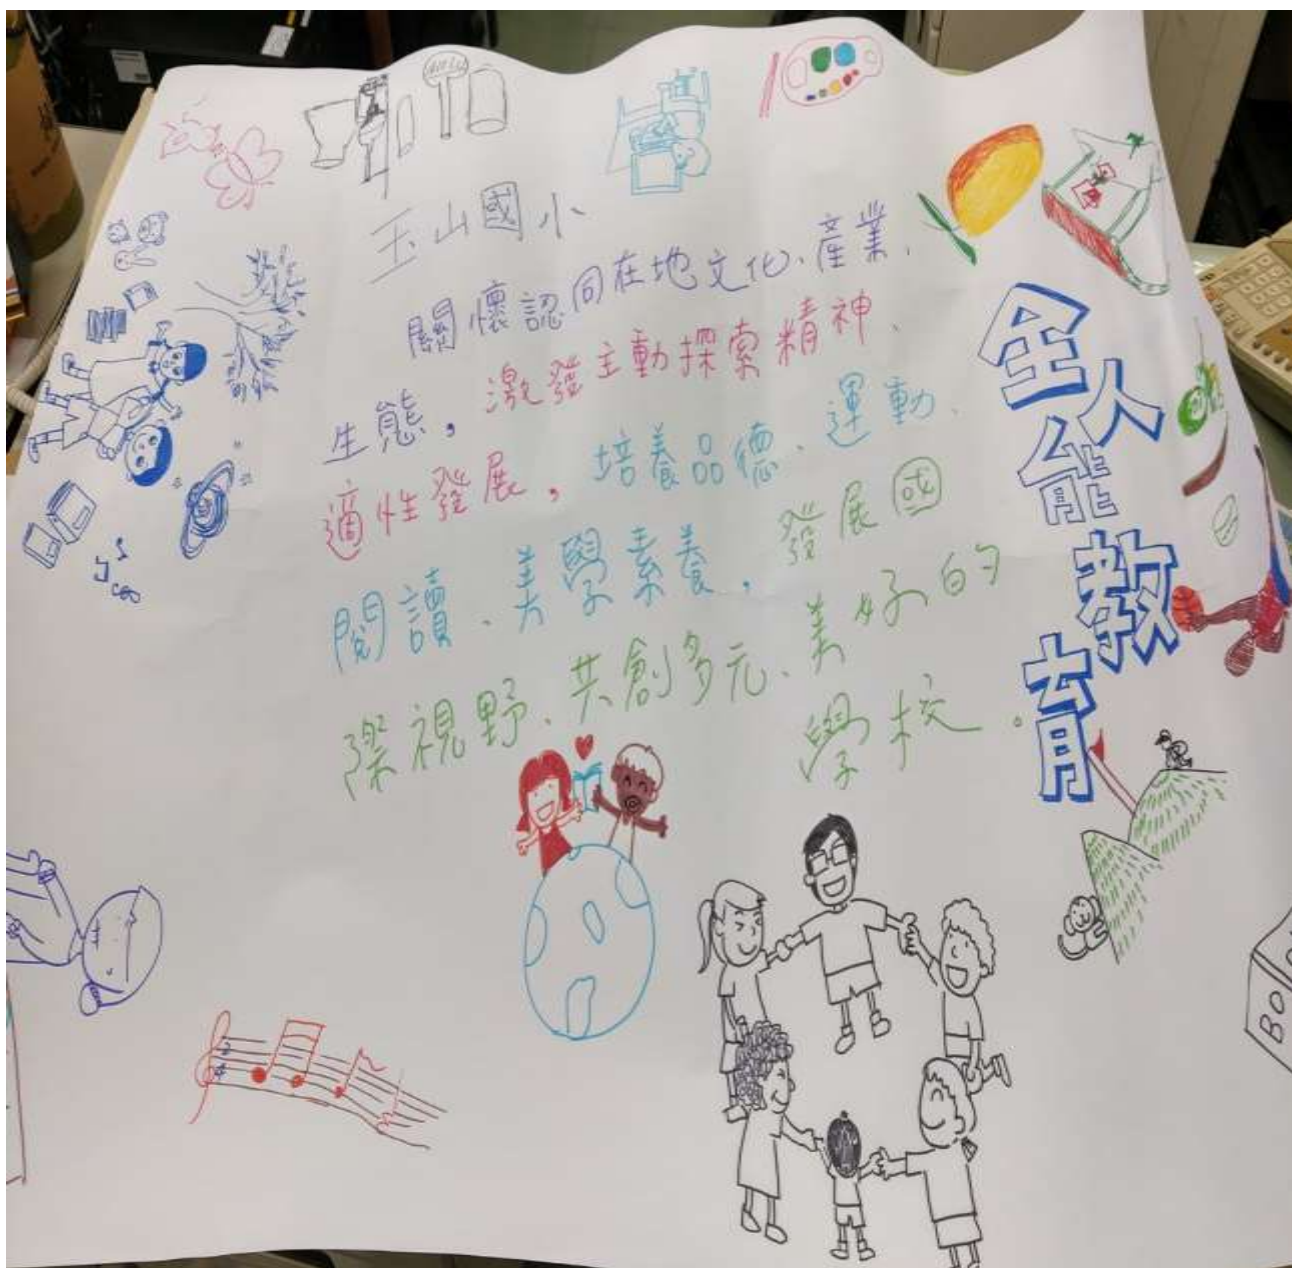 玉山國小
關懷認同在地文化、產業、
生態。激發主動探索精神、
適性發展，培養品德、運動、
閱讀、美學素養，發展國
際視野、共創多元、美好的
學校。
全人
能
教
育
BO